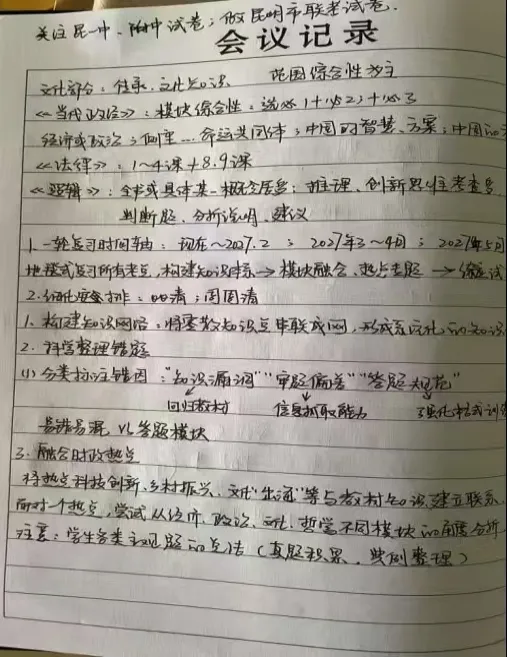 关注昆一中、附中试卷；做昆明市联考试卷.
会议记录
文化部分：传承、文化知识 范围综合性为主
《当代政治》：模块综合性：选必1+必2；+必3
经济或政治；侧重…命运共同体；中国的智慧、方案；中国的
《法律》：1~4课+8.9课
《逻辑》：全书或具体某一概念居多；推理、创新思维考查多
判断题、分析说明、建议
1.一轮复习时间轴：现在~2027.2；2027年3~4月；2027年5月
地毯式复习所有考点，构建知识体系→模块融合、热点专题→
2.细化安排：日清；周周清
1.构建知识网络：将零散知识点串联成网，形成系统化的知识
2.科学整理错题
(1)分类标注错因："知识漏洞""审题偏差""答题规范"
回归教材 信息抓取能力 强化格式训
易错易混 VS 答题模块
3.融合时政热点
将热点科技创新、乡村振兴、文化"出海"等与教材知识建立联系
面对一个热点，尝试从经济、政治、文化、哲学不同模块的角度分析
注意：学生各类主观题的方法（真题积累、典例整理）